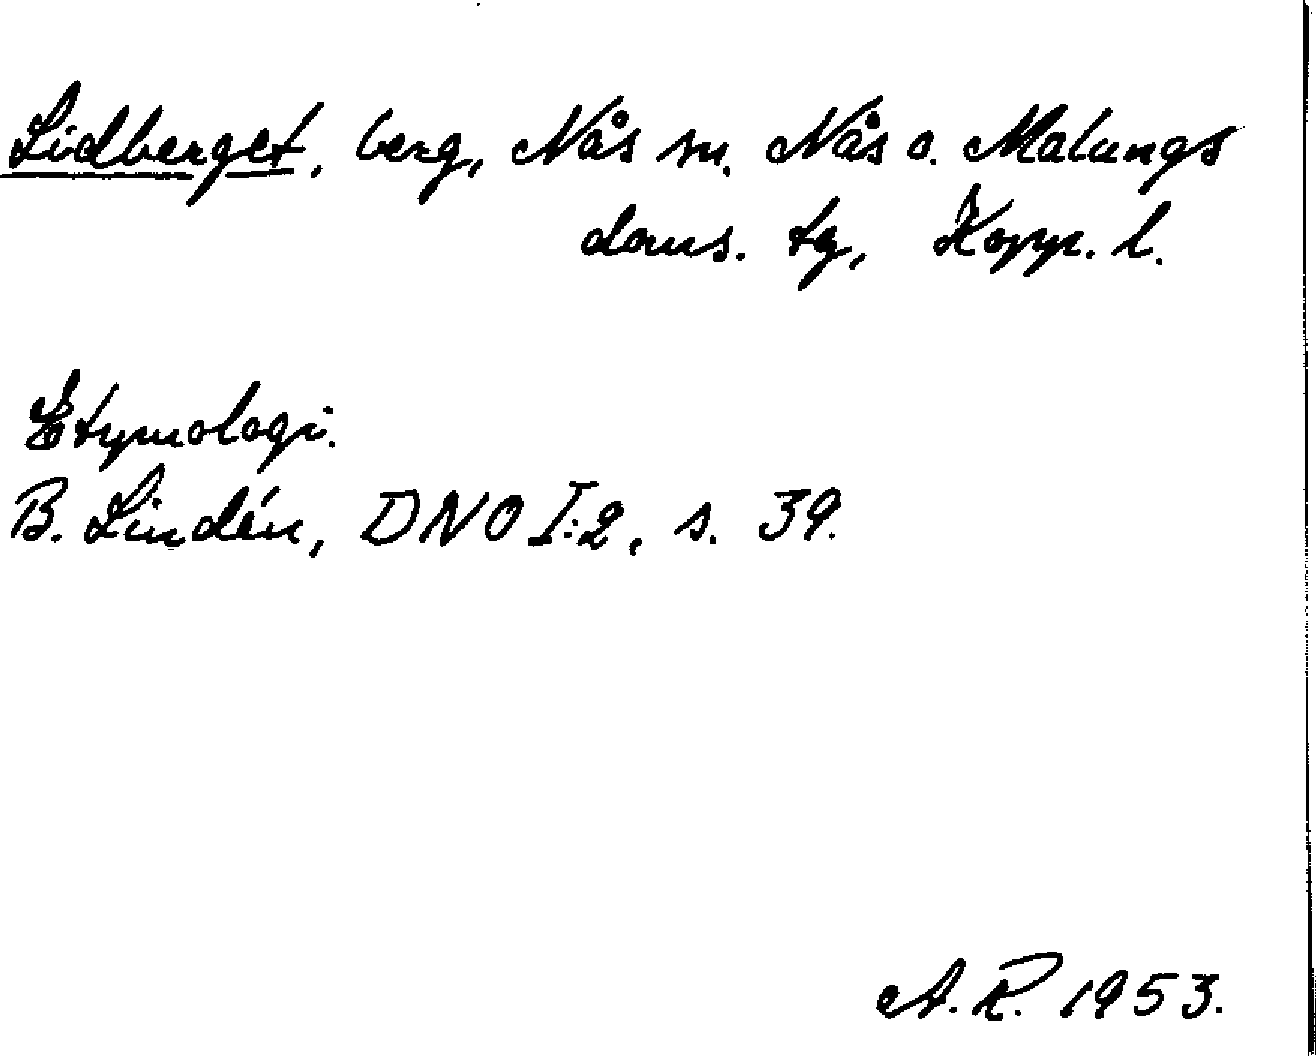 Lidberget, berg, Nås sn. Nås o. Malungs
doms. tg, Kopp. l.
Etymologi.
B. Lindén, DNO I:2, s. 39.
A.R. 1953.